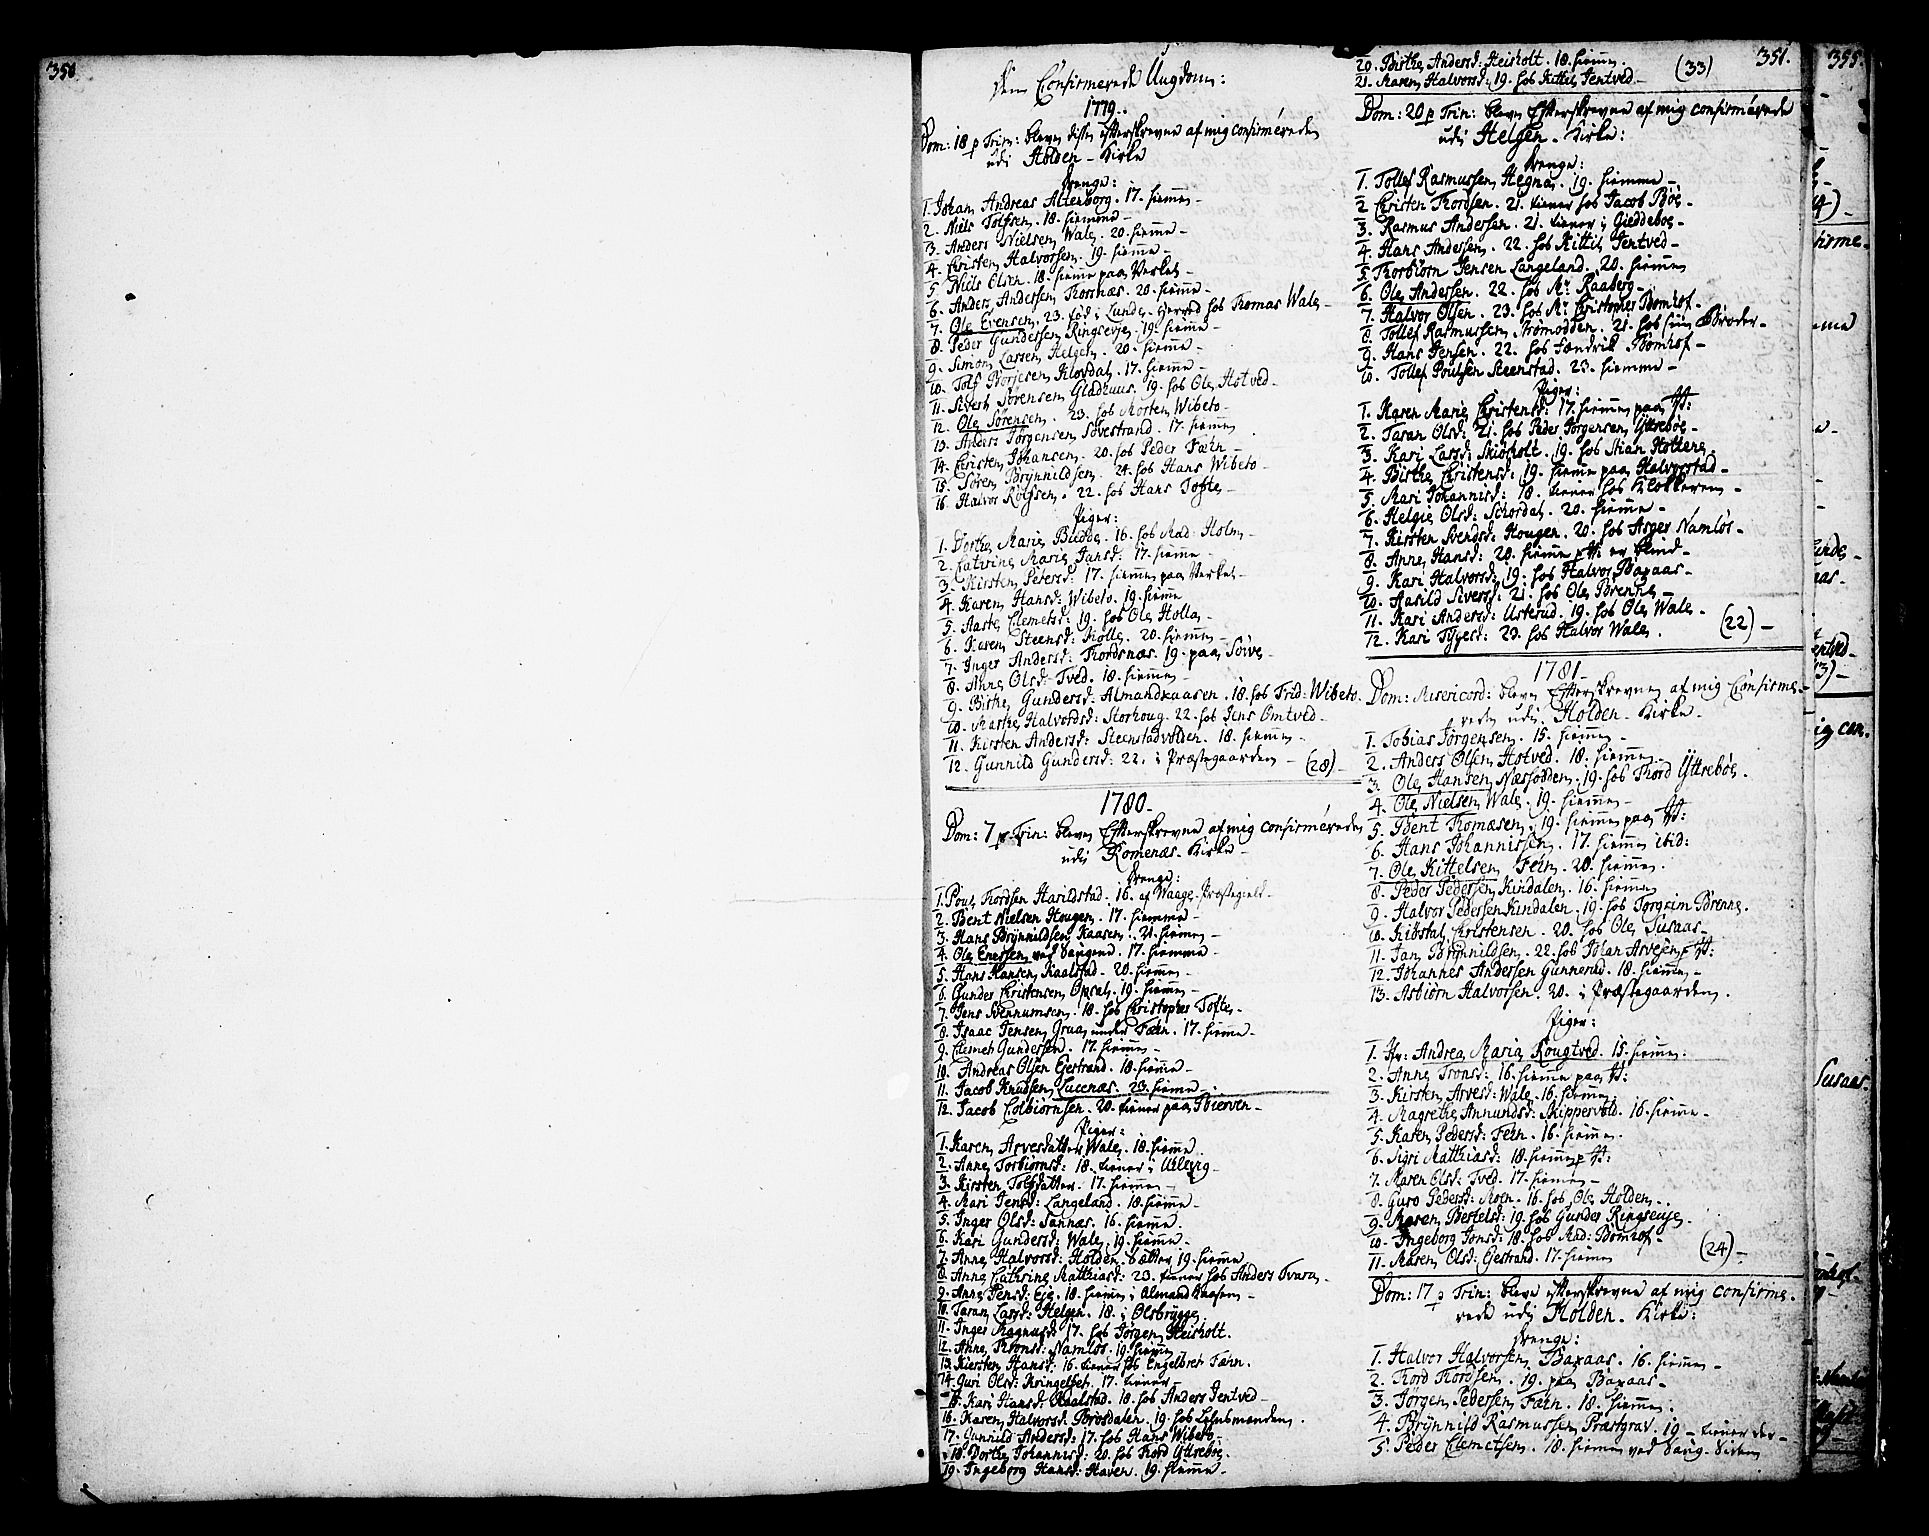 350
Den Confirmerede Ungdom:
1779.
Dom: 18 p Trin: bleve disse efterskrevne af mig confirmerede
udi Holden - Kirke
Drenge:
1. Johan Andreas Altenborg. 17. hiemme -
2. Niels Tolfsen. 18. hiemme -
3. Anders Nielsen Wale. 20. hieme -
4. Christen Halvorsen. 19. hieme -
5. Niels Olsen. 18. hieme paa Verket -
6. Anders Andersen Thorsnæs. 20. hieme -
7. Ole Evensen. 23. fød i Lunde-Herred hos Thomas Wale -
8. Peder Gundersen Ringsevje. 19. hieme -
9. Simon Larsen Helgen. 20. hieme -
10. Tolf Børjesen Klovdal. 17. hieme -
11. Sivert Sørensen Gladhuus. 19. hos Ole Hotved -
12. Ole Sørensen. 23. hos Morten Wibeto -
13. Anders Jørgensen Søvestrand. 17. hieme
14. Christen Johansen. 20. hos Peder Færn -
15. Søren Brynnildsen. 24. hos Hans Wibeto -
16. Halvor Rolfsen. 22. hos Hans Tofte -
Piger:
1. Dorthe Marie Budde. 16. hos Mad: Holm -
2. Cathrine Marie Jansd: 17. hieme -
3. Kirsten Petersd: 17. hieme paa Verket -
4. Karen Hansd: Wibeto. 19. hieme
5. Aaste Clemetsd: 19. hos Ole Holla -
6. Karen Steensd: Holle. 20. hieme -
7. Inger Andersd: Thordsnæs. 19. paa Søve -
8. Anne Olsd: Tved. 18. hieme -
9. Birthe Gundersd: Almandkaasen. 18. hos Frid: Wibeto -
10. Marthe Halvordsd: Storhoug. 22. hos Jens Omtved -
11. Kirsten Andersd: Steenstadvolden. 18. hieme -
12. Gunnild Gundersd: 22. i Præstegaarden - (28) -
1780 -
Dom: 7 p. Trin: bleve Efterskrevne af mig confirmerede
udi Romenæs - Kirke -
Drenge:
1. Poul Thordsen Harildstad. 16. af Waage Præstegield -
2. Bent Nielsen Hougen. 17. hiemme -
3. Hans Brynnildsen Kaasen. 21. hieme -
4. Ole Enersen ved Saugene. 17. hiemme -
5. Hans Hansen Kaalstad. 20. hieme -
6. Gunder Christensen Opsal. 19. hieme -
7. Jens Svennumsen. 18. hos Christopher Tofte -
8. Isaac Jensen Grua under Færn. 17. hieme -
9. Clemet Gundersen. 17. hieme -
10. Andreas Olsen Ejestrand. 18. hieme -
11. Jacob Knudsen Lucenæs. 23. hieme
12. Jacob Colbiørnsen. 20. tiener paa Bierven -
Piger:
1. Karen Arvesdatter Wale. 18. hieme
2. Anne Torbiørnsd: 18. tiener i Ulleberg -
3. Kirsten Tolfsdatter. 17. hieme -
4. Mari Jensd: Langeland. 18. hieme
5. Inger Olsd: Sannæs. 16. hieme
6. Kari Gundersd: Wale. 19. hieme -
7. Anne Halvorsd: Holden-bakker 19. hieme
8. Anne Cathrine Matthiasd: 23. tiener hos Anders Tvara -
9. Anne Jensd: Eje. 18. hieme i Almandkaasen -
10. Taran Larsd: Helgen. 18. i Olsbrygge
11. Inger Magnusd: 17. hos Jørgen Heisholt.
12. Anne Thronsd: Namløs. 19. hieme
13. Kiersten Hansd: 16. tiener hos Engelbret Færn.
14. Guri Olsd: Kringelset. 17. tiener -
15. Kari Hansd: Kaalstad. 18. hos Anders Jentved -
16. Karen Halvorsd: Brosdalen. 19. hos Lehnsmanden.
17. Gunnild Andersd: 17. hos Hans Wibeto -
18. Dorthe Johannisd: 20. hos Thord Yttrebøe -
19. Ingeborg Hansd: Haven. 19. hieme -
351.
20. Birthe Andersd: Heisholt. 18. hieme.
21. Maren Halvorsd: 19. hos Kittil Jentved - (33)
Dom: 20 p Trin: bleve Efterskrevne af mig confirmerede
udi Helgen - Kirke:
Drenge:
1. Tollef Rasmussen Hegna. 19. hiemme -
2. Christen Thordsen. 21. tiener hos Jacob Bøe -
3. Rasmus Andersen. 21. tiener i Gieddeboe -
4. Hans Andersen. 22. hos Kittil Jentved -
5. Thorbiørn Jensen Langeland. 20. hieme
6. Ole Andersen. 22. hos Mr Raaberg -
7. Halvor Olsen. 23. hos Mr Christopher Bomhof -
8. Tollef Rasmussen Strømodden. 21. hos sin Broder -
9. Hans Jensen. 22. hos Fendrik Bomhof -
10. Tollef Poulsen Steenstad. 23. hiemme -
Piger:
1. Karen Marie Christensd: 17. hieme paa H:
2. Taran Olsd: 21. hos Peder Jørgensen Yttrebøe -
3. Kari Larsd: Skiøsholt. 19. hos Stian Hottane
4. Birthe Christensd: 19. hieme paa Halvorstad -
5. Mari Johannisd: 18. tiener hos Klokkeren -
6. Helgie Olsd: Schordal. 20. hieme -
7. Kirsten Svendsd: Hougen. 20. hos Asger Namløs -
8. Anne Hansd: 20. hieme p H: er blind -
9. Kari Halvorsd: 19. hos Halvor Baxaas -
10. Aasild Siversd: 21. hos Ole Brenne -
11. Kari Andersd: Usterud. 19. hos Ole Wale -
12. Kari Tygesd: 23. hos Halvor Wale. (22) -
1781 -
Dom: Misericord: bleve Efterskrevne af mig Confirme-
rede udi Holden - Kirke -
1. Tobias Jørgensen. 15. hieme -
2. Anders Olsen Hotved. 18. hieme -
3. Ole Hansen Næsodden. 19. hos Thord Yttrebøe.
4. Ole Nielsen Wale. 19. hieme -
5. Bent Thomæsen. 19. hieme paa H:
6. Hans Johannissen. 17. hieme ibid:
7. Ole Kittelsen Feen. 20. hieme.
8. Peder Pedersen Kindalen. 16. hieme
9. Halvor Pedersen Kindalen. 19. hos Torgrim Brenne.
10. Kiøstol Christensen. 20. hos Ole Susaas -
11. Jan Brynnildsen. 22. hos Johan Arvesen p H:
12. Johannes Andersen Gunnerud. 18. hieme -
13. Asbiørn Halvorsen. 20. i Præstegaarden.
Piger:
1. Jfr: Andrea Maria Rougtved. 15. hieme:
2. Anne Tronsd: 16. hieme paa H:
3. Kirsten Arvesd: Wale. 16. hieme
4. Magrethe Annundsd: Skippervold. 16. hieme -
5. Karen Pedersd: Feen. 16. hieme.
6. Sigri Matthiasd: 18. hieme p H:
7. Maren Olsd: Tved. 17. hieme -
8. Guro Pedersd: Moen. 16. hos Ole Holden -
9. Maren Bertelsd: 19. hos Gunder Ringsevje.
10. Ingeborg Jonsd: 18. hos Mad: Bomhof -
11. Maren Olsd: Ejestrand. 17. hieme (24) -
Dom: 17 p Trin: bleve efterskrevne af mig confirme-
rede udi Holden - Kirke:
Drenge:
1. Halvor Halvorsen Baxaas. 16. hieme -
2. Thord Thordsen. 19. paa Baxaas -
3. Jørgen Pedersen Færn. 18. hieme.
4. Brynnild Rasmussen Præstgrav. 19 - tiener der -
5. Peder Clemetsen. 18. hieme ved Saug-Sirken
355.
firme-
entved -
ig con.
Susaas.